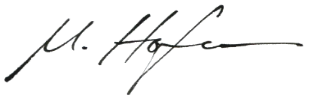 M. Hofer